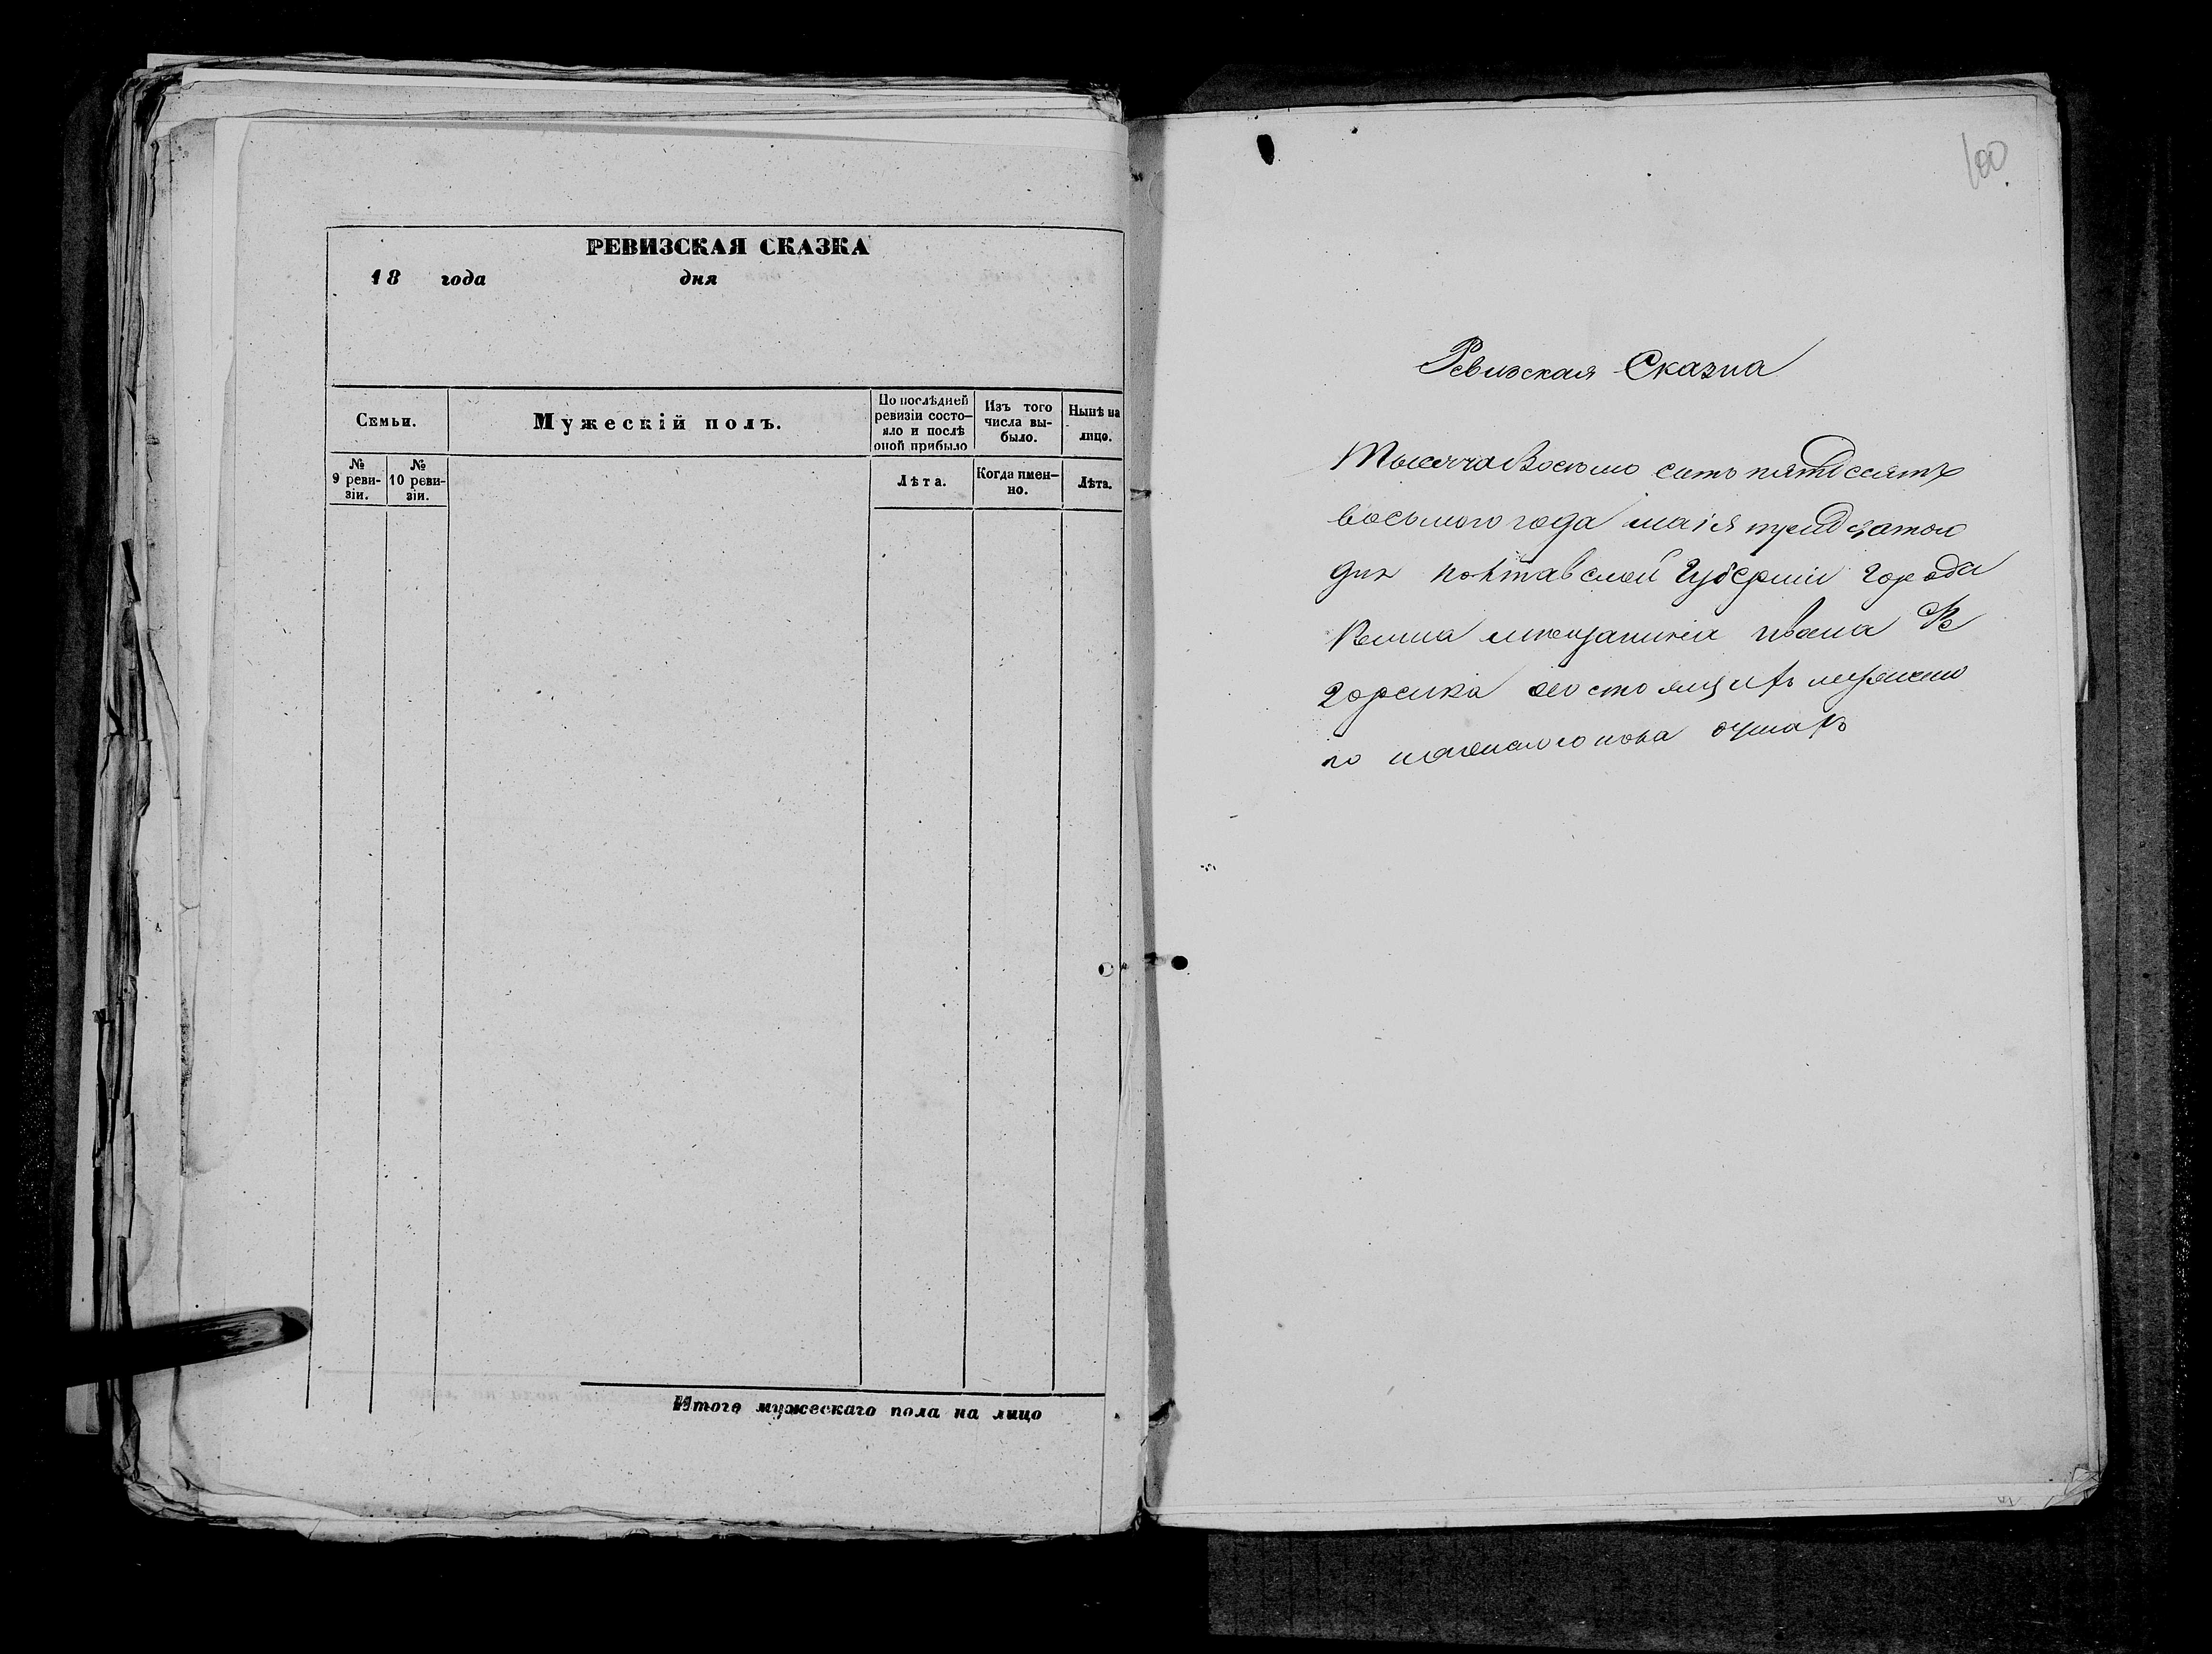 РЕВИЗСКАЯ СКАЗКА
18 года дня
Семьи.
Мужескій полъ.
По послѣдней
ревизіи состо-
яло и послѣ
оной прибыло
Изъ того
числа вы-
было.
Нынѣ на
лицо.
№
9 реви-
зіи.
№
10 реви-
зіи.
Лѣта.
Когда имен-
но.
Лѣта.
Итого мужескаго пола на лицо
100
Ревизская Сказка
Тысяча Восемо сотъ пятдесятъ
восьмого года маія тридцатого
дня Полтавской Губерніи Города
мещанина Ивана
го женского пола душахъ